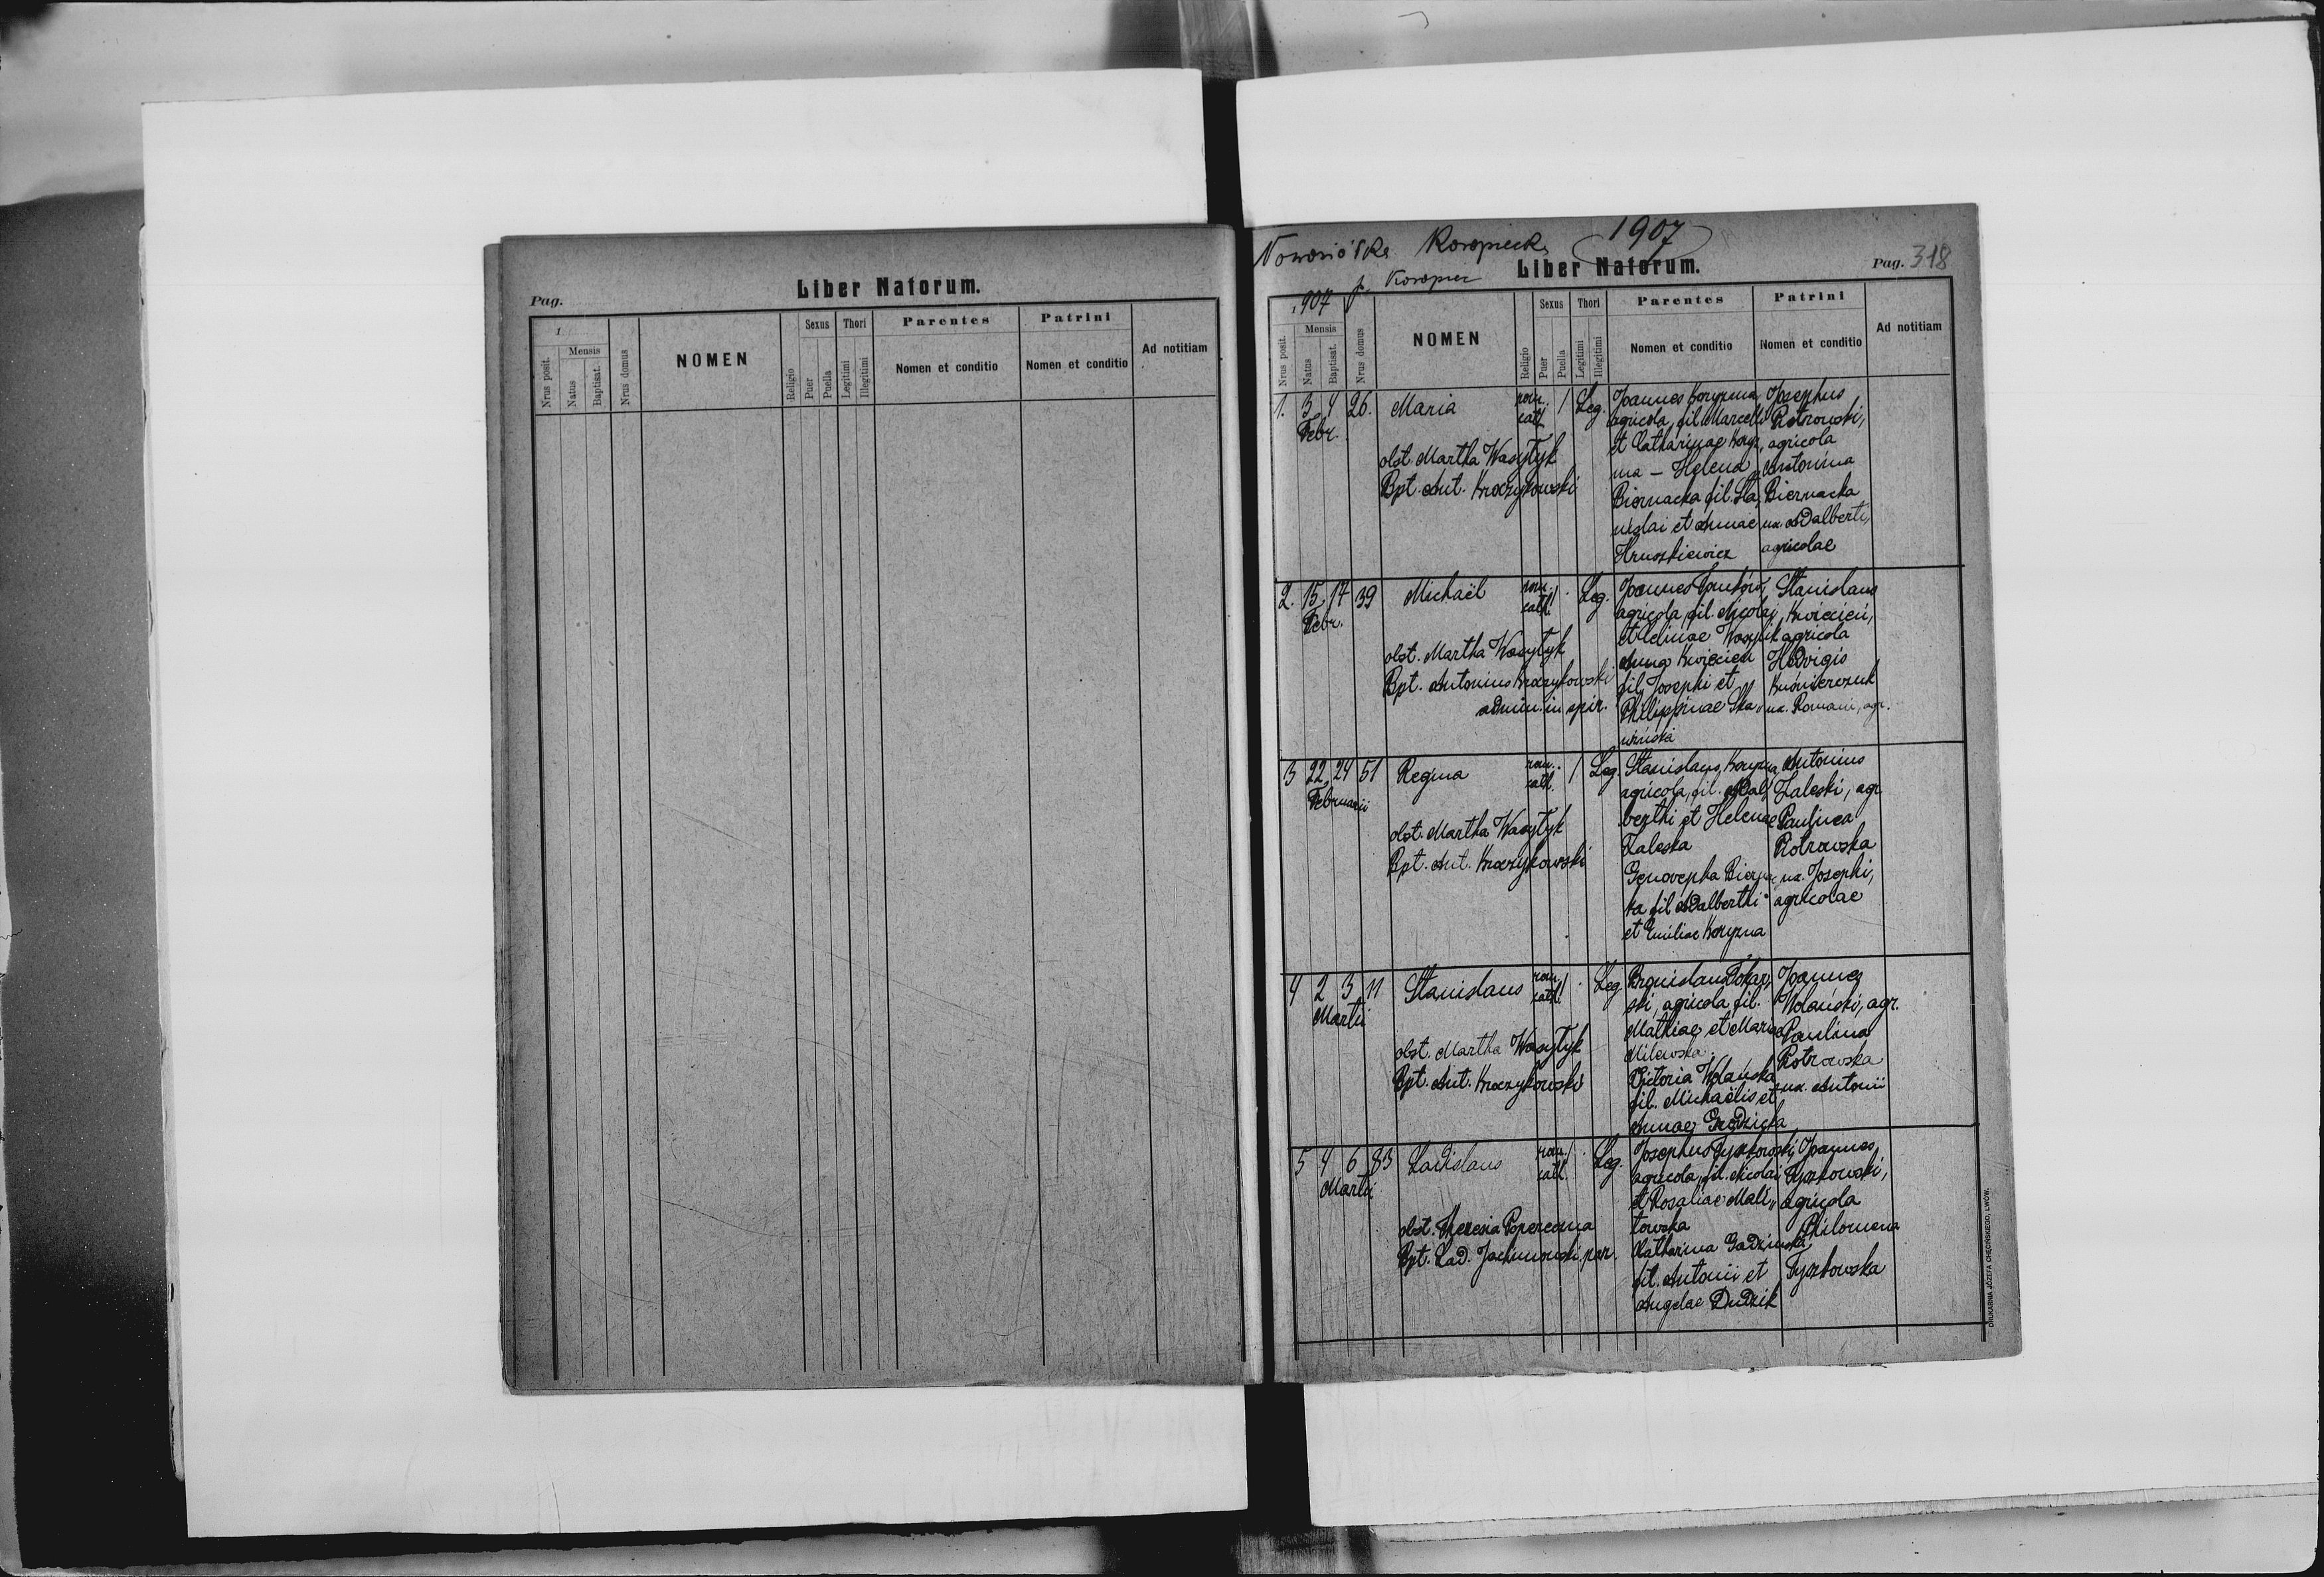 Liber Natorum.
Pag.
1
Sexus Thori Parentes Patrini
Mensis
Nrus posit. Natus Baptisat. Nrus domus NOMEN Religio Puer Puella Legitimi Illegitimi Nomen et conditio Nomen et conditio Ad notitiam
1907
Nowosiółka Koropiecka
p. Koropiec
Liber Natorum.
Pag. 318
1907
Sexus Thori Parentes Patrini
Mensis
Nrus posit. Natus Baptisat. Nrus domus NOMEN Religio Puer Puella Legitimi Illegitimi Nomen et conditio Nomen et conditio Ad notitiam
1. 3 4 26. Maria rom. cath. / Leg.
Febr.
obst. Martha Wasytyk
Bpt. Ant. Kroczykowski
Joannes Koryzma
agricola, fil. Marcelli
et Catharinae Koryz,
ma – Helena
Biernacka fil. Sta,
nislai et Annae
Hruszkiewicz
Josephus
Piotrowski,
agricola
Antonina
Biernacka
ux. Adalberti,
agricolae
2. 15 17 39 Michaël rom. cath. / Leg.
Febr.
obst. Martha Wasytyk
Bpt. Antonius Kroczykowski
admin. in spir.
Joannes
agricola, fil. Nicolai
et
Anna Kwiecień
fil. Josephi et
Philippinae Ska„
wińska
Stanislaus
Kwiecień,
agricola
Hedvigis
Kuśnierczuk
ux. Romani, agr.
3 22 24 51 Regina rom. cath. / Leg.
Februarii
obst. Martha Wasytyk
Bpt. Ant. Kroczykowski
Stanislaus Koryzma
agricola, fil. Adal„
berthi et Helenae
Zaleska
Genovepha Biernac
ka fil Adalberthi
et Emiliae Koryzma
Antonius
Zaleski, agr
Paulina
Piotrowska
ux. Josephi,
agricolae
4 2 3 11 Stanislaus rom. cath. / Leg
Martii
obst. Martha Wasytyk
Bpt. Ant. Kroczykowski
Bronislaus Tokar,
ski, agricola fil.
Mathiae et Mariae
Milewska.
Victoria Wolańska
fil. Michaëlis et
Annae Gredzicka
Joannes
Wolański, agr.
Paulina
Piotrowska
ux. Antonii
5 4 6 83 Ladislaus rom. cath. / Leg.
Martii
obst. Theresia Popereczna
Bpt. Lad. Jachimowski par.
Josephus Tyszkowski
agricola, fil. Nicolai
et Rosaliae Mali„
towska
Catharina Gadzinska
fil. Antonii et
Angelae Dudzik
Joannes
Tyszkowski,
agricola
Philomena
Tyszkowska
DRUKARNIA JÓZEFA CHĘCIŃSKIEGO, LWÓW.